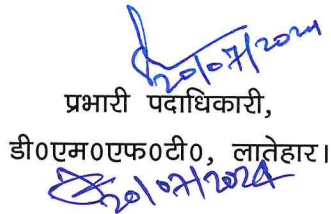 20/07/2024
प्रभारी पदाधिकारी,
डी०एम०एफ०टी०, लातेहार।
20/07/2024